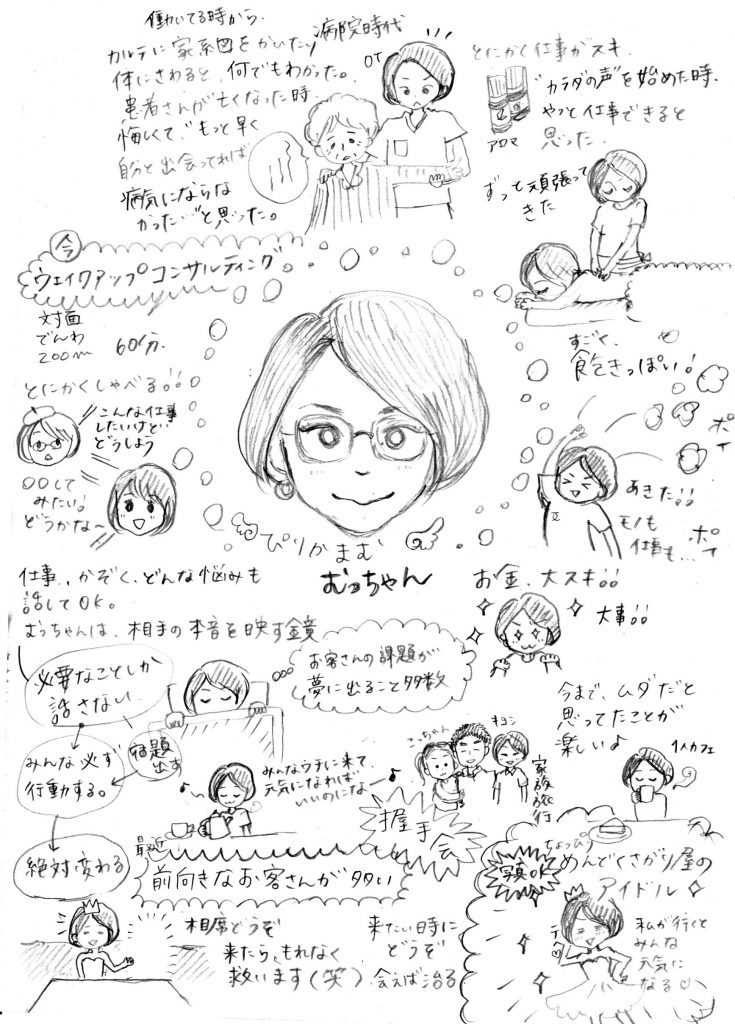 働いてる時から、
病院時代
カルテに家系図をかいたり
体にさわると、何でもわかった。
患者さんが亡くなった時、
悔しくて、"もっと早く
自分と出会ってれば
病気にならな
かった…"と思った。
OT
とにかく仕事がスキ、
"カラダの声"を始めた時、
やっと仕事できると
思った。
アロマ
ずっと頑張って
きた
今
ウェイクアップコンサルティング
対面
でんわ
ZOOM
60分、
とにかくしゃべる!!
こんな仕事
したいけど
どうしよう
〇〇して
みたい!
どうかな~
すごく、
飽きっぽい!
ポイ
あきた!!
モノも
仕事も…
ポイ
ぴりかまむ
むっちゃん
仕事、かぞく、どんな悩みも
話してOK。
むっちゃんは、相手の本音を映す鏡
お金、大スキ!!
大事!!
必要なことしか
話さない
宿題
出す
みんな必ず
行動する。
絶対変わる
お客さんの課題が
夢に出ること多数
みんなウチに来て、
元気になれば
いいのにな~
こっちゃん
キヨシ
家族旅行
今まで、ムダだと
思ってたことが
楽しいよ
1人カフェ
最近
前向きなお客さんが多い
握手会
写真OK
ちょっぴり
めんどくさがり屋の
アイドル
テヘ
私が行くと
みんな
元気に
なる♡
相席どうぞ
来たら、もれなく
救います(笑)
来たい時に
どうぞ
会えば治る